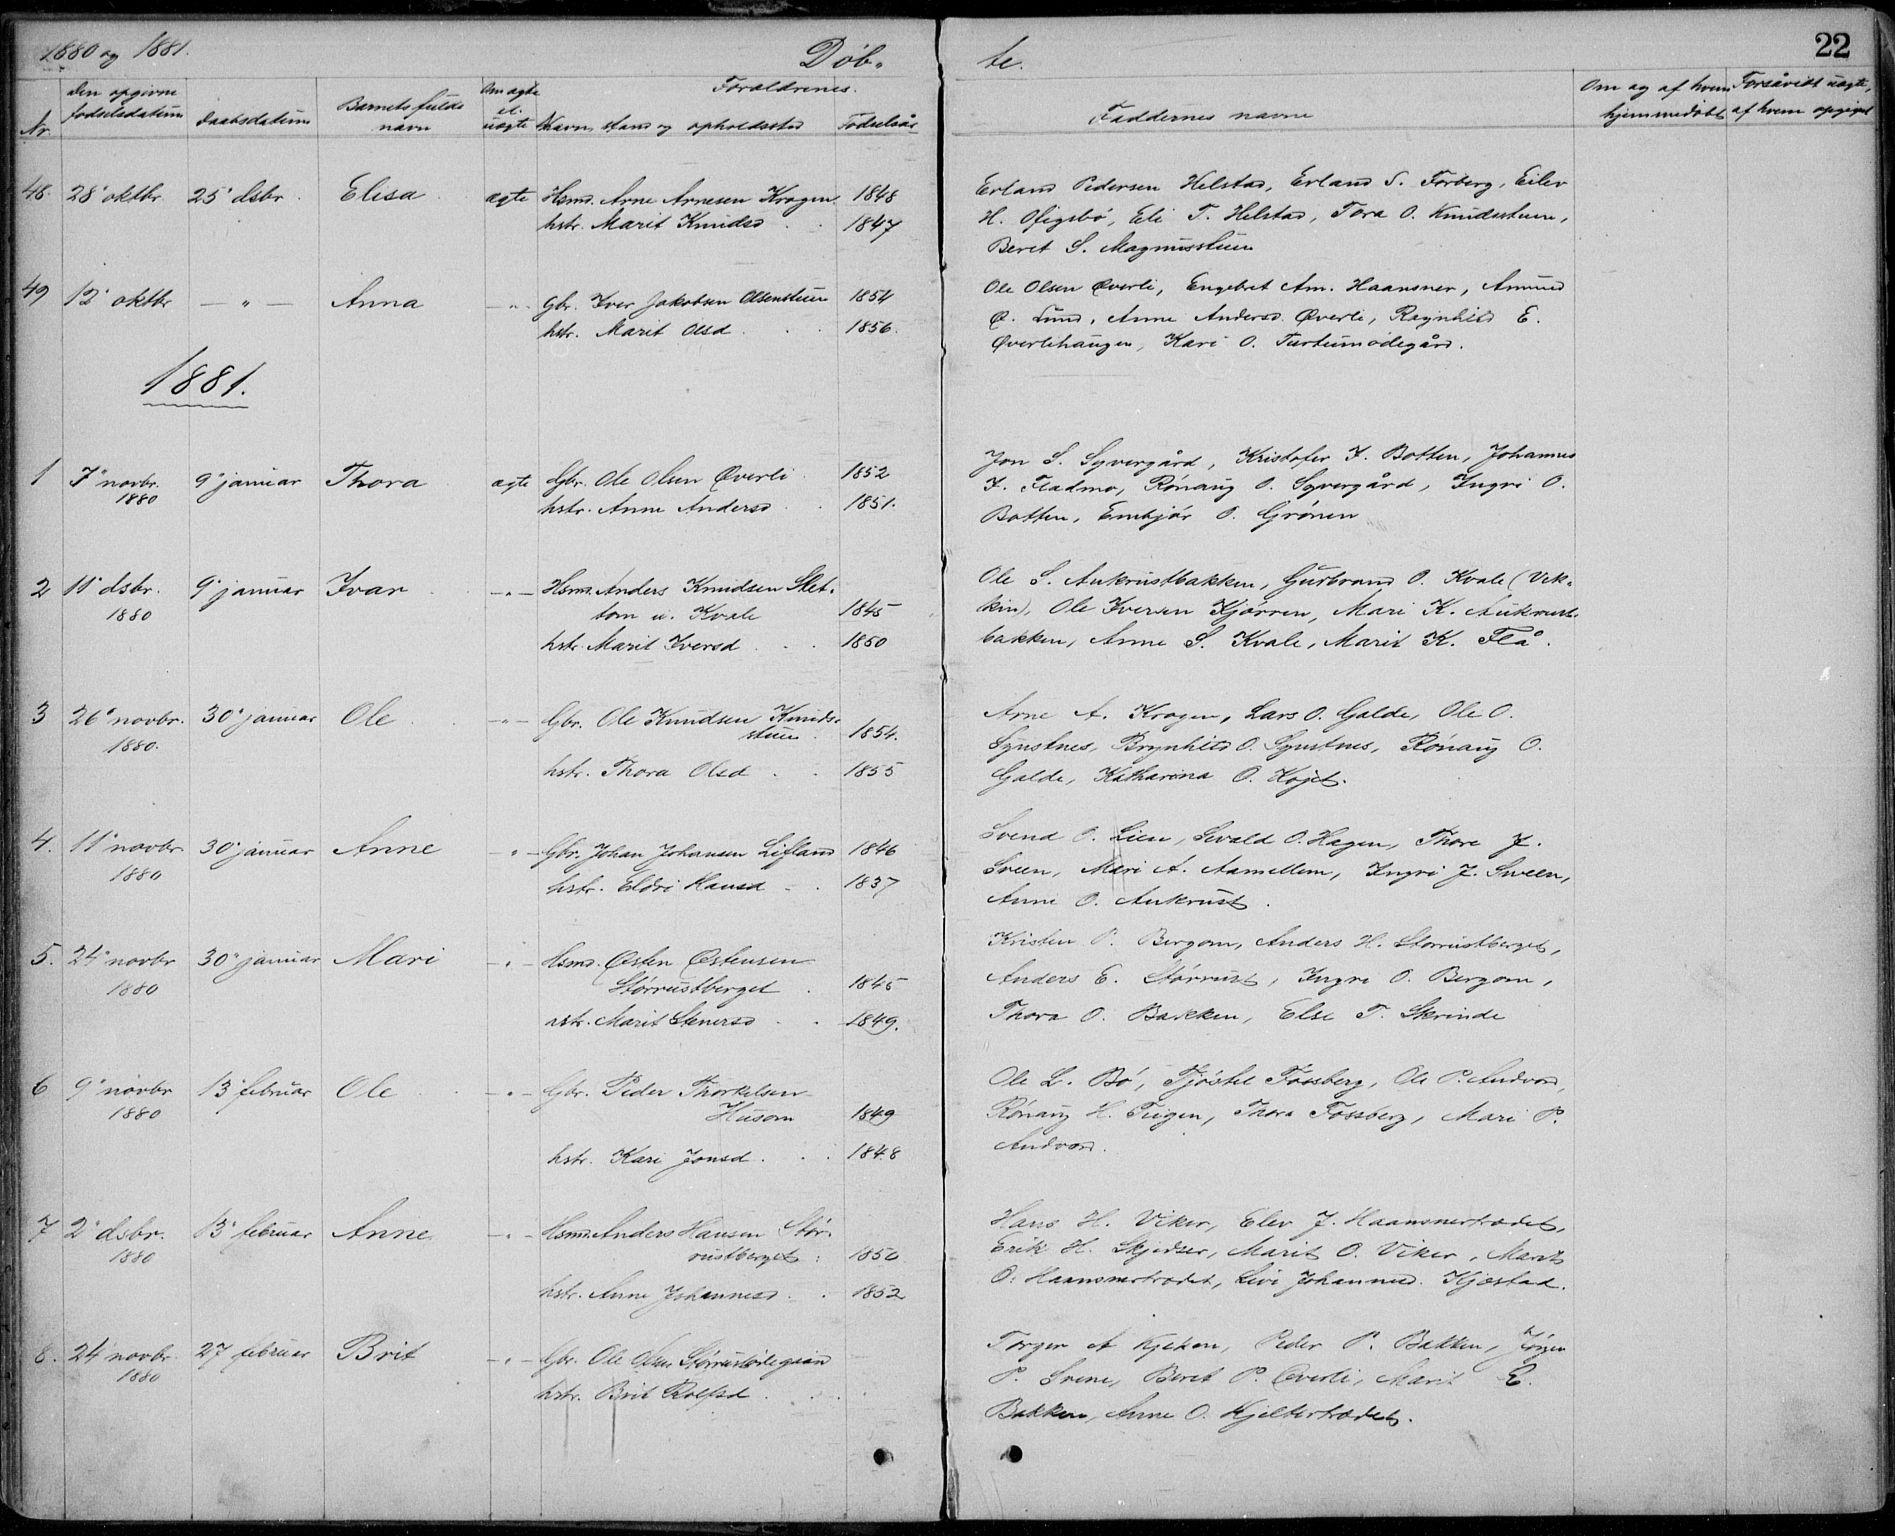 1880 og 1881.
Døb-
te.
22
Nr.
Den opgivne
fødselsdatum
Daabsdatum
Barnets fulde
navn
Om ægte
el.
uægte
Forældrenes.
Navn, stand og opholdssted
Fødselsår
Faddernes navne
Om og af hvem
hjemmedøbt
Forsåvidt uægte,
af hvem opgivet
48. 28' oktbr 25' dsbr. Elisa ægte Hsmd. Arne Arnesen Krogen 1848
hstr. Marit Knudsd 1847
Erland Pedersen Helstad, Erland S. Forberg, Eilev
H. Ofigsbø, Eli T. Helstad, Tora O. Knudsstuen,
Beret S. Magnusstuen
49 12' oktbr — " — Anna — " — Gbr. Iver Jakobsen Olsenstuen 1854
hstr. Marit Olsd. 1856.
Ole Olsen Øverli, Engebret Am. Haansnar, Amund
Ø. Lund, Anne Andersd. Øverli, Ragnhild E.
Øverlihaugen, Kari O. Turteimødegård.
1881.
1 7' novbr. 9' januar Thora ægte Gbr. Ole Olsen Øverli 1852
1880
hstr. Anne Andersd 1851.
Jon S. Syvergård, Kristofer I. Botten, Johannes
I. Fladmo, Rönaug O. Syvergård, Ingri O.
Botten, Embjør O. Grönen
2 11' dsbr. 9' januar Ivar — " — Hsmd. Anders Knudsen Slet-
1880
tom u. Kvale 1845
hstr. Marit Iversd 1850
Ole S. Aukrustbakken, Gudbrand O. Kvale (Vek-
kin), Ole Iversen Kjörren, Mari K. Aukrust-
bakken, Anne S. Kvale, Marit K. Flå.
3 26' novbr. 30' januar Ole — " — Gbr. Ole Knudsen Knuds-
1880.
stuen 1854.
hstr. Thora Olsd 1855
Arne A. Krogen, Lars O. Galde, Ole O.
Synstnes, Brynhild O. Synstnes, Rönaug O.
Galde, Katharina O. Højet.
4. 11' novbr 30' januar Anne — " — Gbr. Johan Johansen Lifland 1846
1880
hstr. Eldri Hansd 1837
Svend O. Lien, Sevald O. Hagen, Thore J.
Sveen, Mari A. Aamellem, Ingri J. Sveen,
Anne O. Aukrust.
5. 24' novbr 30' januar Mari — " — Hsmd. Østen Østensen
1880
Störrustberget 1845
hstr. Marit Stenersd 1849.
Kristen P. Bergom, Anders H. Störrustberget,
Anders E. Störrust, Ingri O. Bergom,
Thora O. Bakken, Else T. Skrinde
6 9' novbr 13' februar Ole — " — Gbr. Peder Thorkelsen
1880
Husom 1849
hstr. Kari Jonsd. 1848
Ole L. Bö, Tjöstel Fossberg, Ole P. Andvord,
Rönaug H. Teigen, Thora Fossberg, Mari P.
Andvord.
7 2' dsbr. 13' februar Anne — " — Hsmd. Anders Hansen Stör-
1880
rustberget 1850
hstr. Anne Johannesd. 1852
Hans H. Viker, Elev J. Haansnartrædet,
Erik H. Skjedser, Marit O. Viker, Marit
O. Haansnartrædet, Livi Johannesd. Kjæstad.
8. 24 novbr. 27 februar Brit — " — Gbr. Ole Olsen Störrustödegaard
1880
hstr. Brit Rolfsd.
Torger A Kjeken, Peder P. Bakken, Jörgen
P. Sveine, Beret P. Øverli, Marit E.
Bakken, Anne O. Kjeltertrædet.